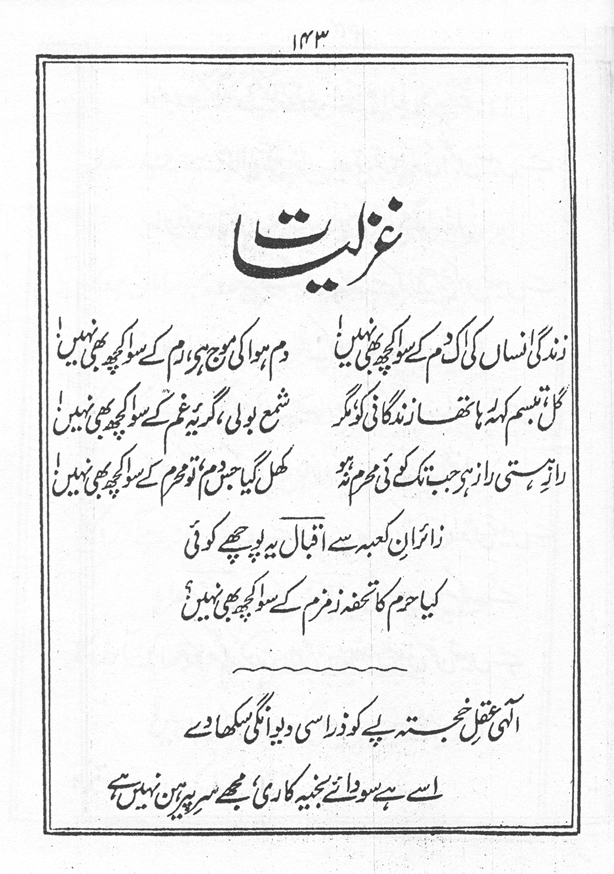 ۱۴۳
غزلیات
زندگی انساں کی اک دم کے سوا کچھ بھی نہیں! دم ہوا کی موج ہی، رم کے سوا کچھ بھی نہیں!
گل، تبسم کہہ رہا تھا زندگانی کو، مگر شمع بولی، گریۂ غم کے سوا کچھ بھی نہیں!
رازِ ہستی راز ہی جب تک کوئی محرم نہ ہو کھل گیا جس دم، تو محرم کے سوا کچھ بھی نہیں!
زائرانِ کعبہ سے اقبال یہ پوچھے کوئی
کیا حرم کا تحفہ زمزم کے سوا کچھ بھی نہیں؟
الٰہی عقلِ خجستہ پے کو ذرا سی دیوانگی سکھا دے
اسے ہے سودائے بخیہ کاری، مجھے سرِ پیرہن نہیں ہے